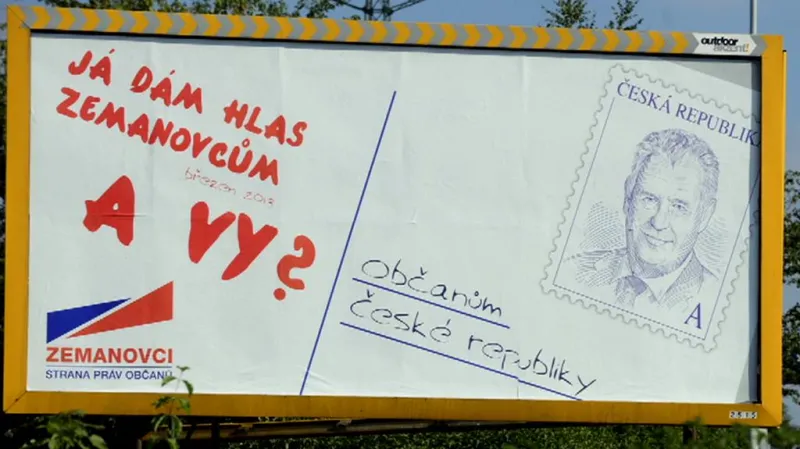 JÁ DÁM HLAS
ZEMANOVCŮM
březen 2013
A VY?
ZEMANOVCI
STRANA PRÁV OBČANŮ
Občanům
České republiky
ČESKÁ REPUBLIK
A
outdoor
akzent!